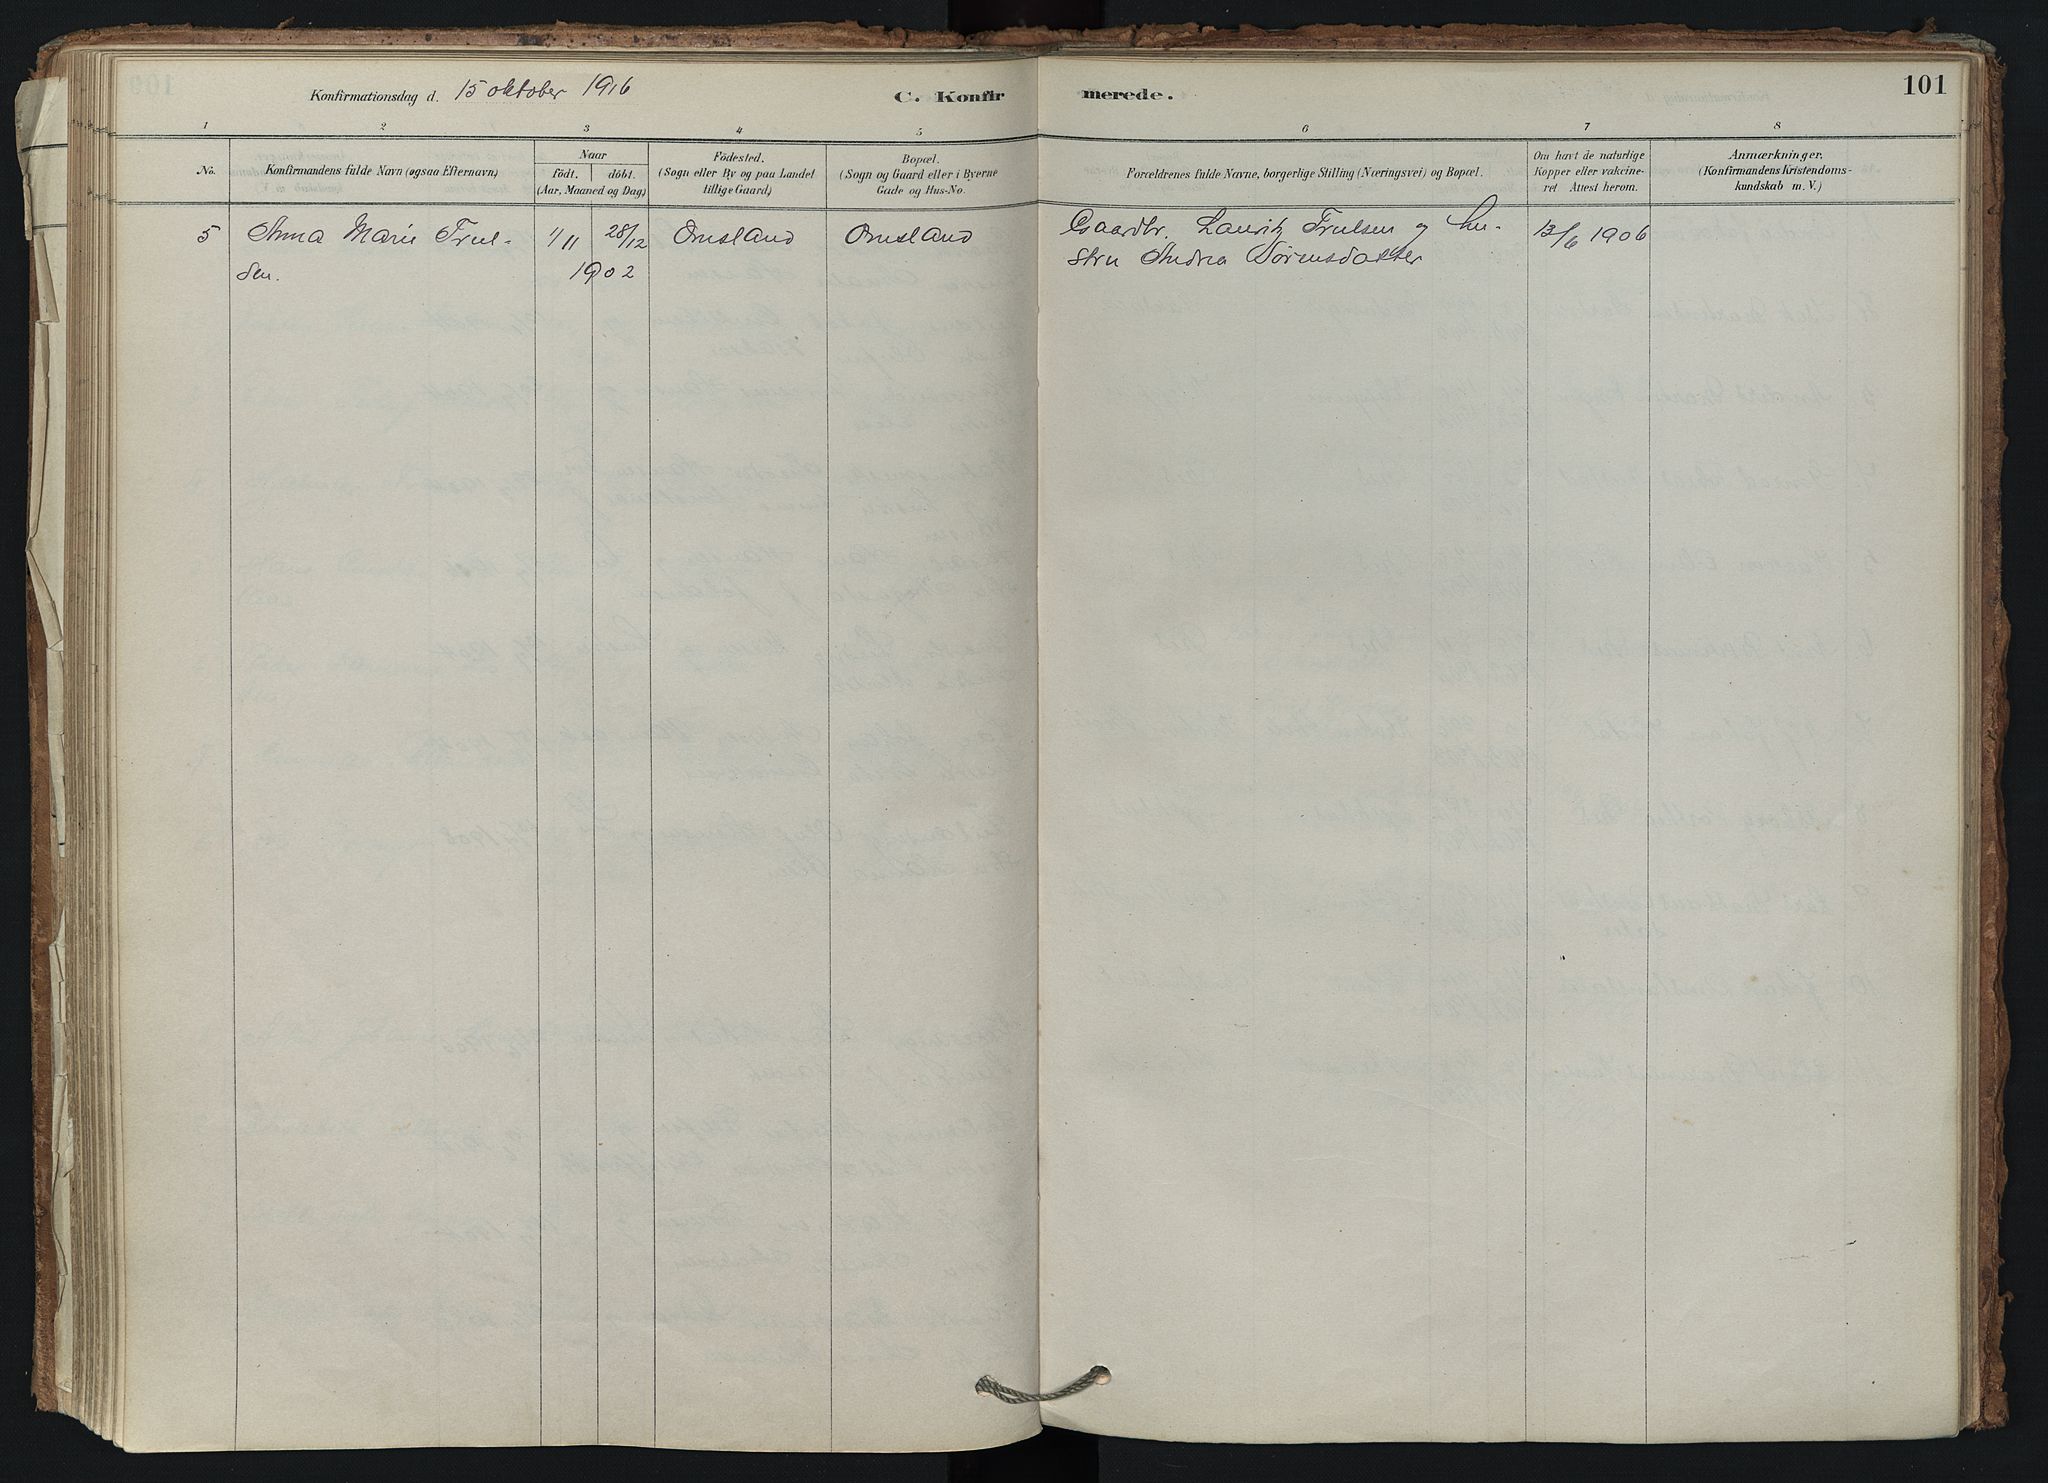 Konfirmationsdag d. 15 oktober 1916
C. Konfirmerede.
101
1 2 3 4 5 6 7 8
No.
Konfirmandens fulde Navn (ogsaa Efternavn)
Naar
Födt. döbt.
(Aar, Maaned og Dag)
Födested.
(Sogn eller By og paa Landet
tillige Gaard)
Bopæl.
(Sogn og Gaard eller i Byerne
Gade og Hus-No.
Forældrenes fulde Navne, borgerlige Stilling (Næringsvei) og Bopæl.
Om havt de naturlige
Kopper eller vakcine-
ret Attest herom.
Anmærkninger.
(Konfirmandens Kristendoms-
kundskab m. V.)
5 Anna Marie Trul- 1/11 28/12 Omsland Omsland Gaardbr. Lauritz Trulsen og hu- 13/6 1906
sen. 1902 stru Andrea Sørensdatter